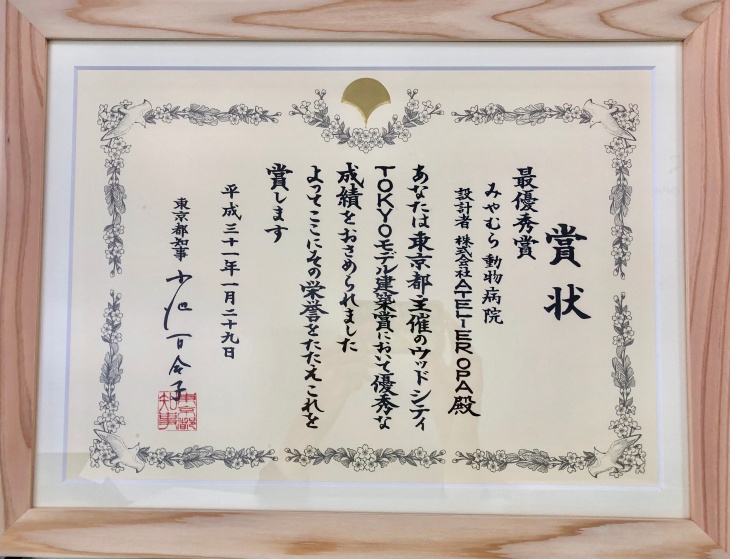 賞状
最優秀賞
みやむら動物病院
設計者 株式会社ATELIER OPA 殿
あなたは東京都主催のウッドシティ
TOKYOモデル建築賞において優秀な
成績をおさめられました
よってここにその栄誉をたたえこれを
賞します
平成三十一年一月二十九日
東京都知事 小池百合子
東京都知事